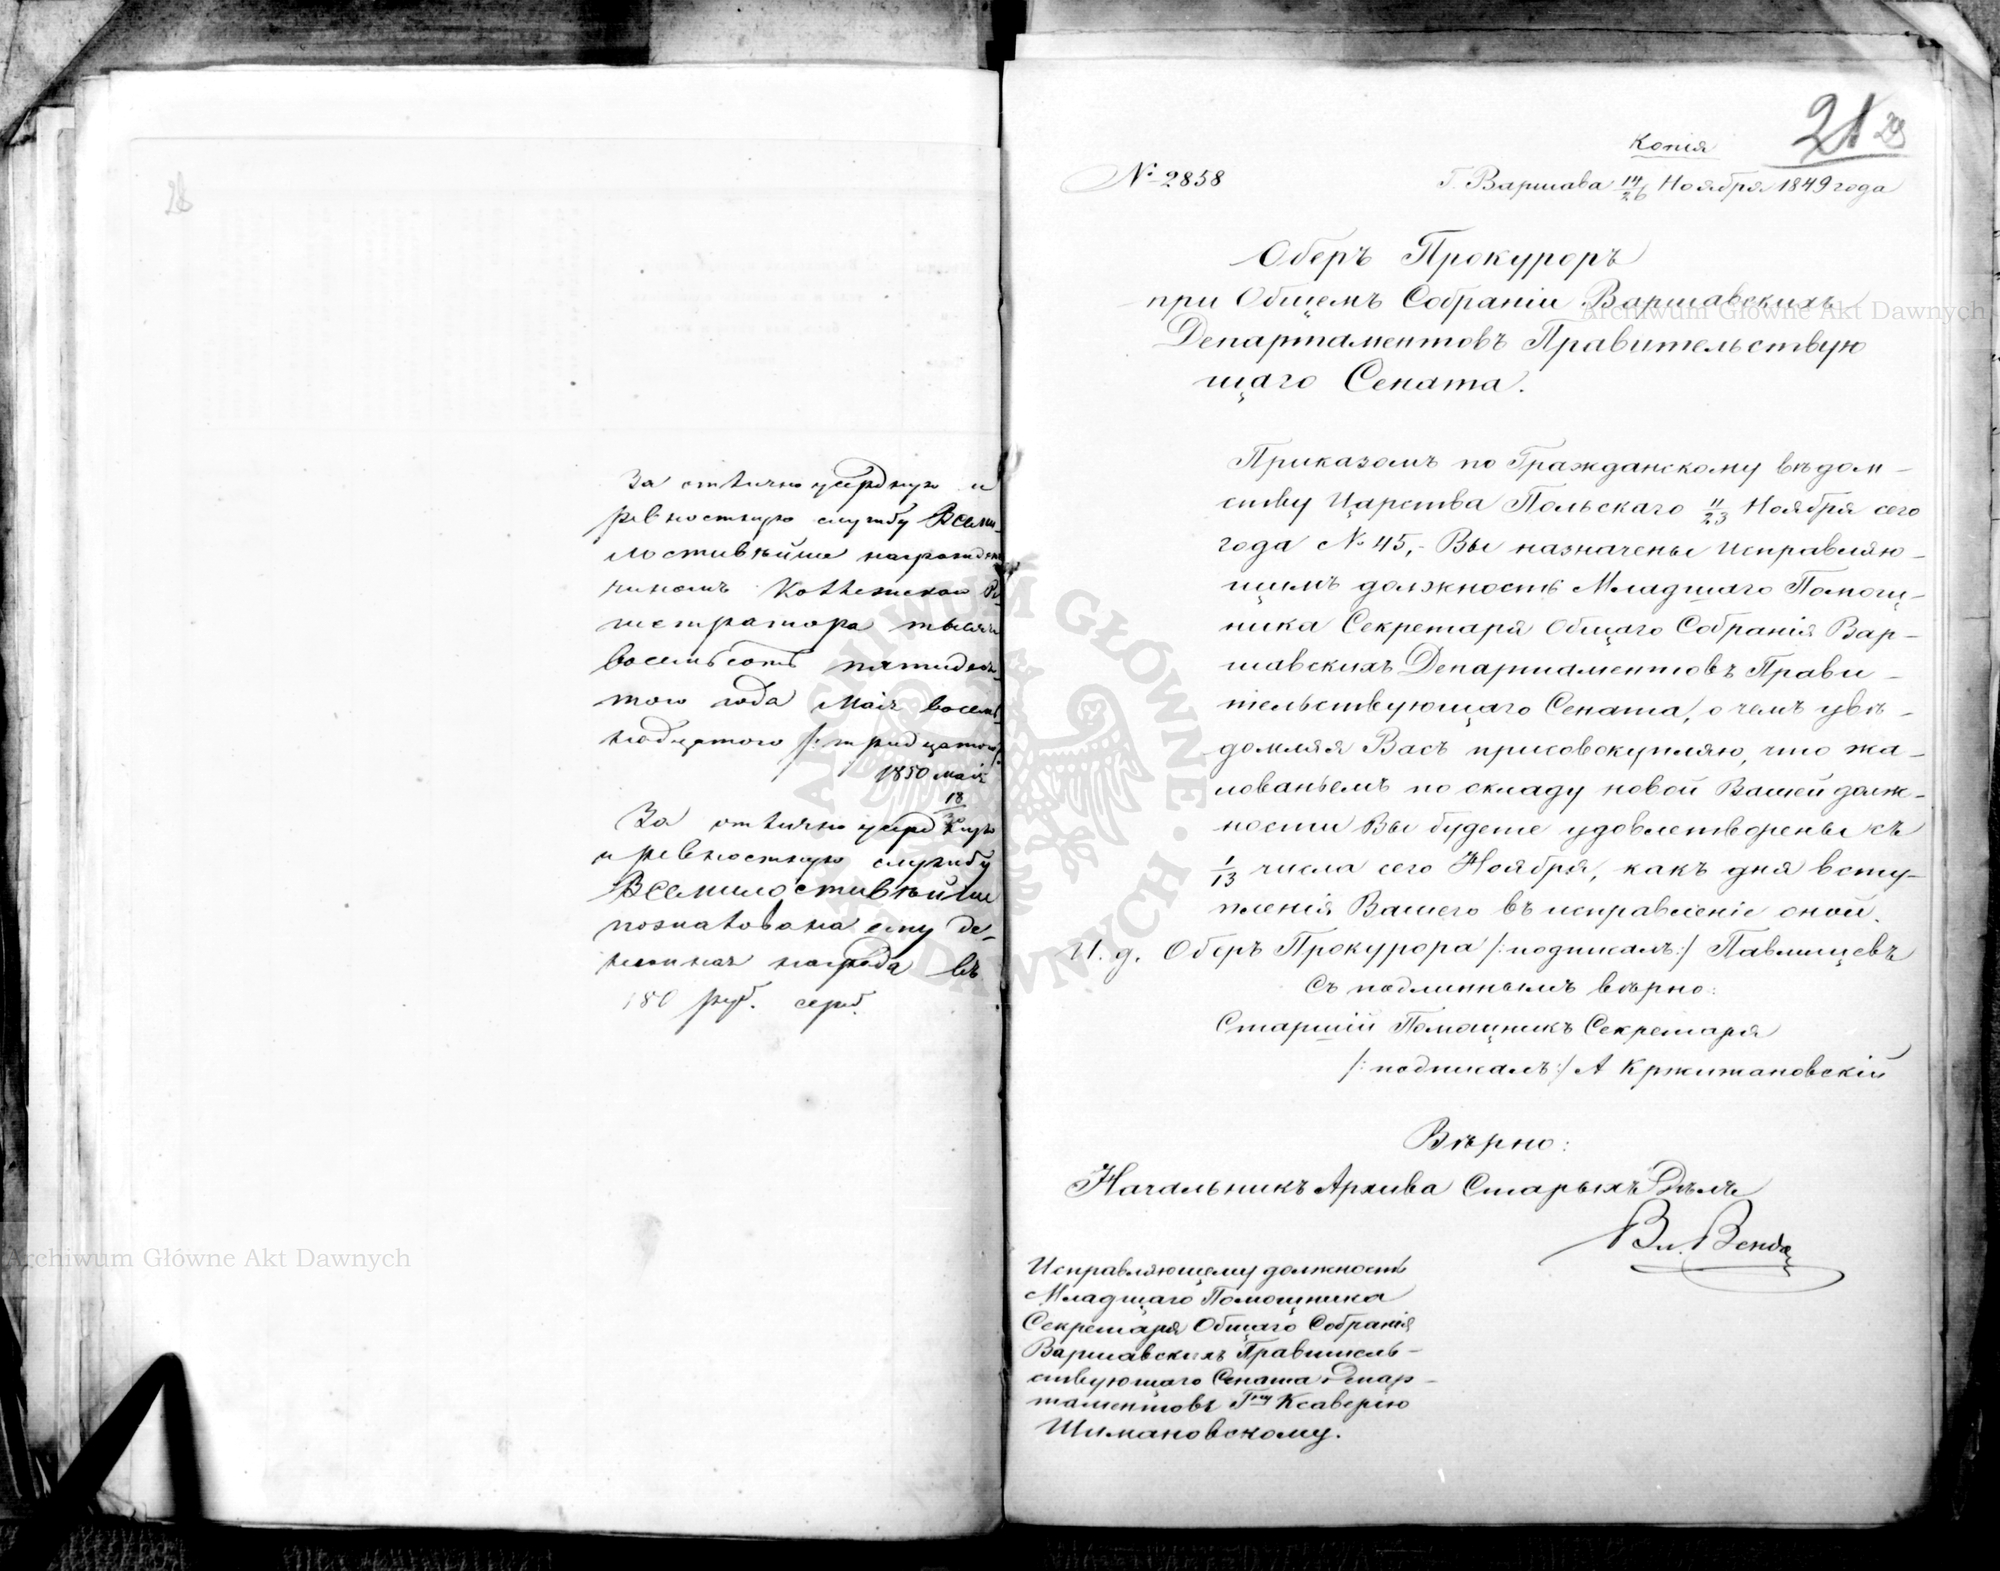 28
За отлично усердную и
ревностную службу Всеми-
лостивѣйше награжденъ
чиномъ Коллежскаго Ре-
гистратора тысяча
восемьсотъ пятидеся-
того года Маія восем-
надцатого /:тридцатого:/
1850 маія
18/30
За отлично усердную
и ревностную службу
Всемилостивѣйше
пожалована ему де-
нежная награда въ
180 руб. сереб.
21 28
Копія
№ 2858 Г. Варшава 14/26 Ноября 1849 года
Оберъ Прокуроръ
при Общемъ Собраніи Варшавскихъ
Департаментовъ Правительствую
щаго Сената.
Приказомъ по Гражданскому вѣдом-
ству Царства Польскаго 11/23 Ноября сего
года № 45,- Вы назначены исправляю-
щимъ должность Младшаго Помощ-
ника Секретаря Общаго Собранія Вар-
шавскихъ Департаментовъ Прави-
тельствующаго Сената, о чемъ увѣ-
домляя Васъ присовокупляю, что жа-
лованьемъ по окладу новой Вашей долж-
ности Вы будете удовлетворены съ
1/13 числа сего Ноября, какъ дня всту-
пленія Вашего въ исправленіе оной.
И. д. Оберъ Прокурора /:подписалъ:/ Павлищевъ
Съ подлиннымъ вѣрно:
Старшій Помощникъ Секретаря
/:подписалъ:/ А Кржижановскій
Вѣрно:
Начальникъ Архива Старыхъ Дѣлъ
Вл. Венда
Исправляющему должность
Младшаго Помощника
Секретаря Общаго Собранія
Варшавскихъ Правитель-
ствующаго Сената Депар-
таментовъ Гну Ксаверію
Шимановскому.
Archiwum Główne Akt Dawnych
Archiwum Główne Akt Dawnych
ARCHIWUM GŁÓWNE · AKT DAWNYCH ·